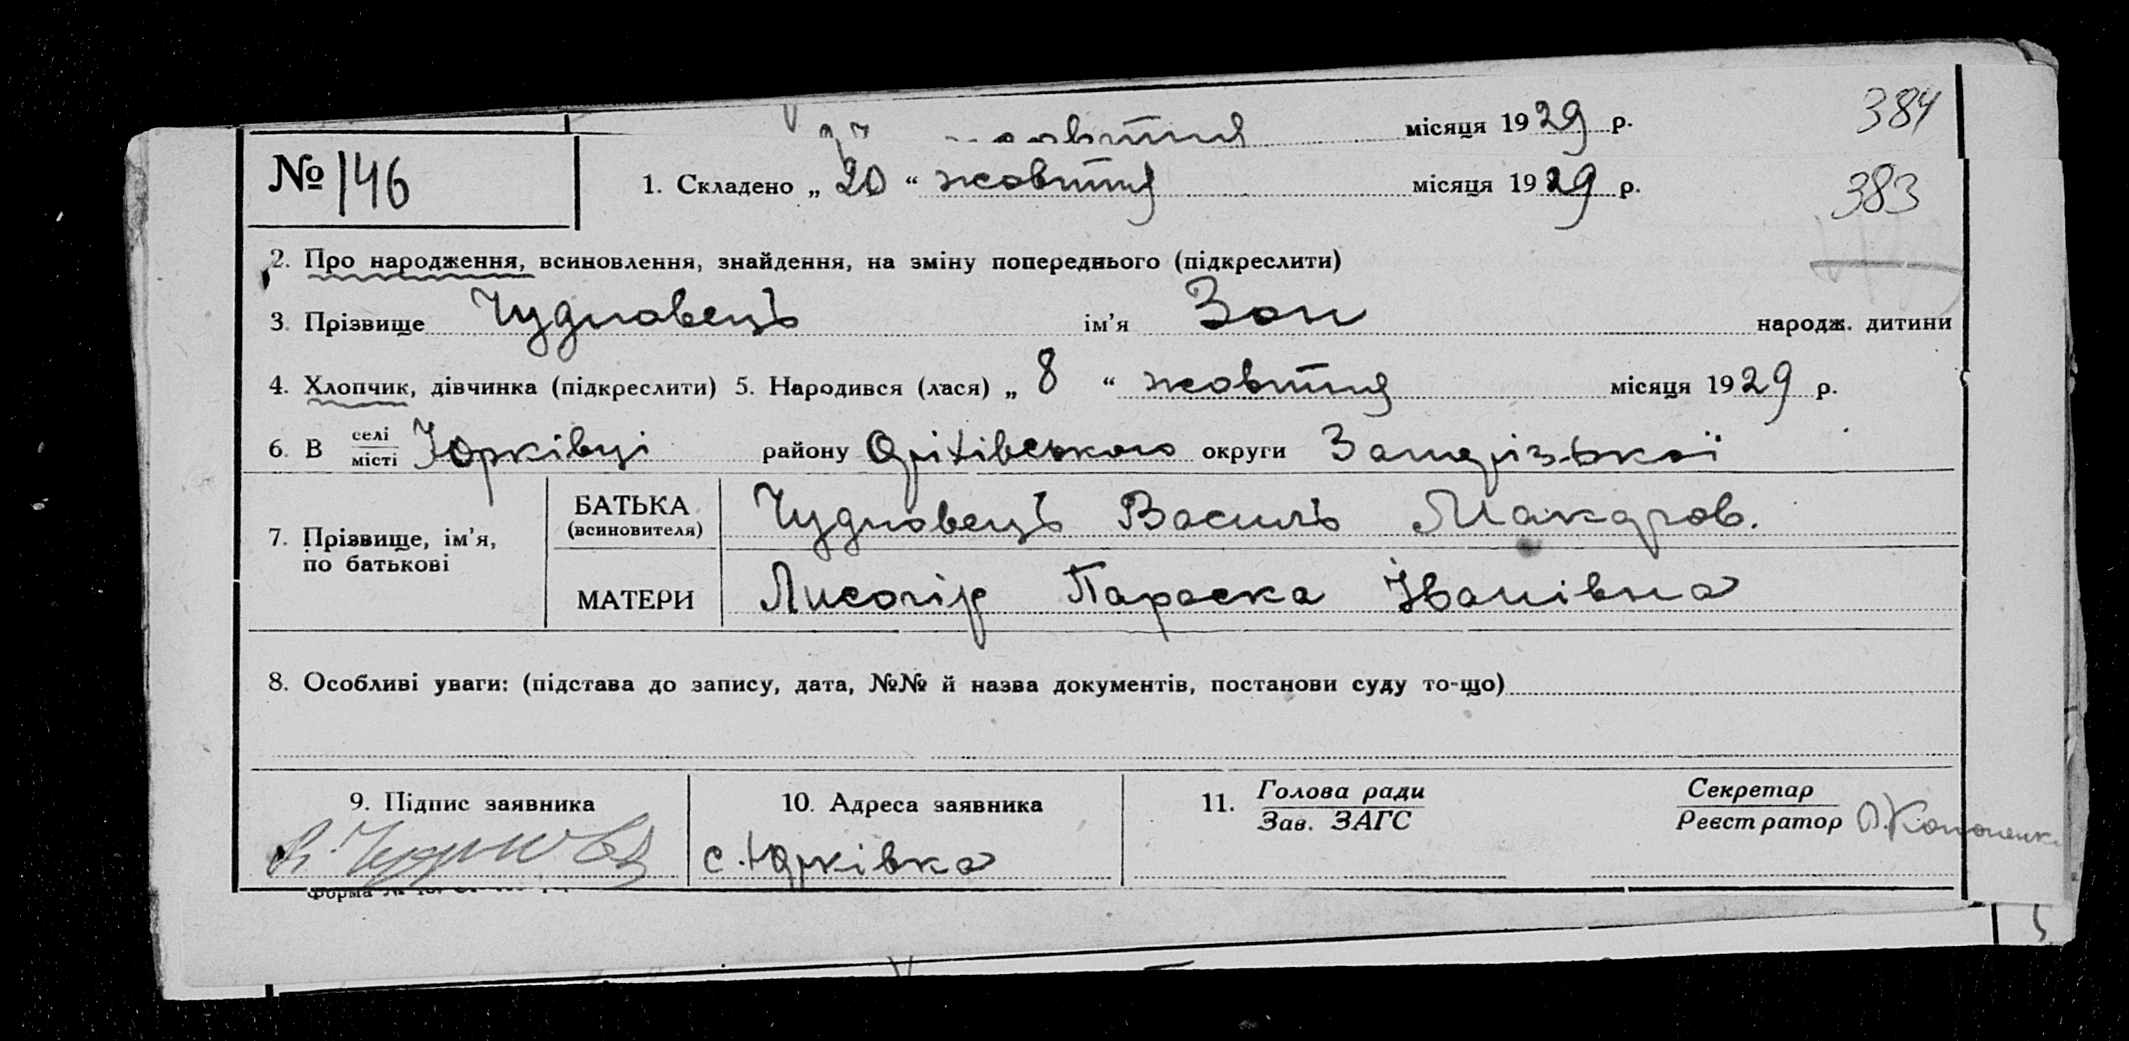 місяця 1929 р. 384
№ 146 1. Складено „ 20 “ жовтня місяця 1929 р. 383
2. Про народження, всиновлення, знайдення, на зміну попереднього (підкреслити)
3. Прізвище Чудновець ім’я Зон народж. дитини
4. Хлопчик, дівчинка (підкреслити) 5. Народився (лася) „ 8 “ жовтня місяця 1929 р.
6. В селі місті Юрківці району Оріхівського округи Запорізької
7. Прізвище, ім’я, по батькові
БАТЬКА (всиновителя) Чудновець Василь Макаров.
МАТЕРИ Лисогір Параска Іванівна
8. Особливі уваги: (підстава до запису, дата, №№ й назва документів, постанови суду то-що)
9. Підпис заявника 10. Адреса заявника 11. Голова ради Зав. ЗАГС Секретар Реєстратор
с. Юрківка
Форма №